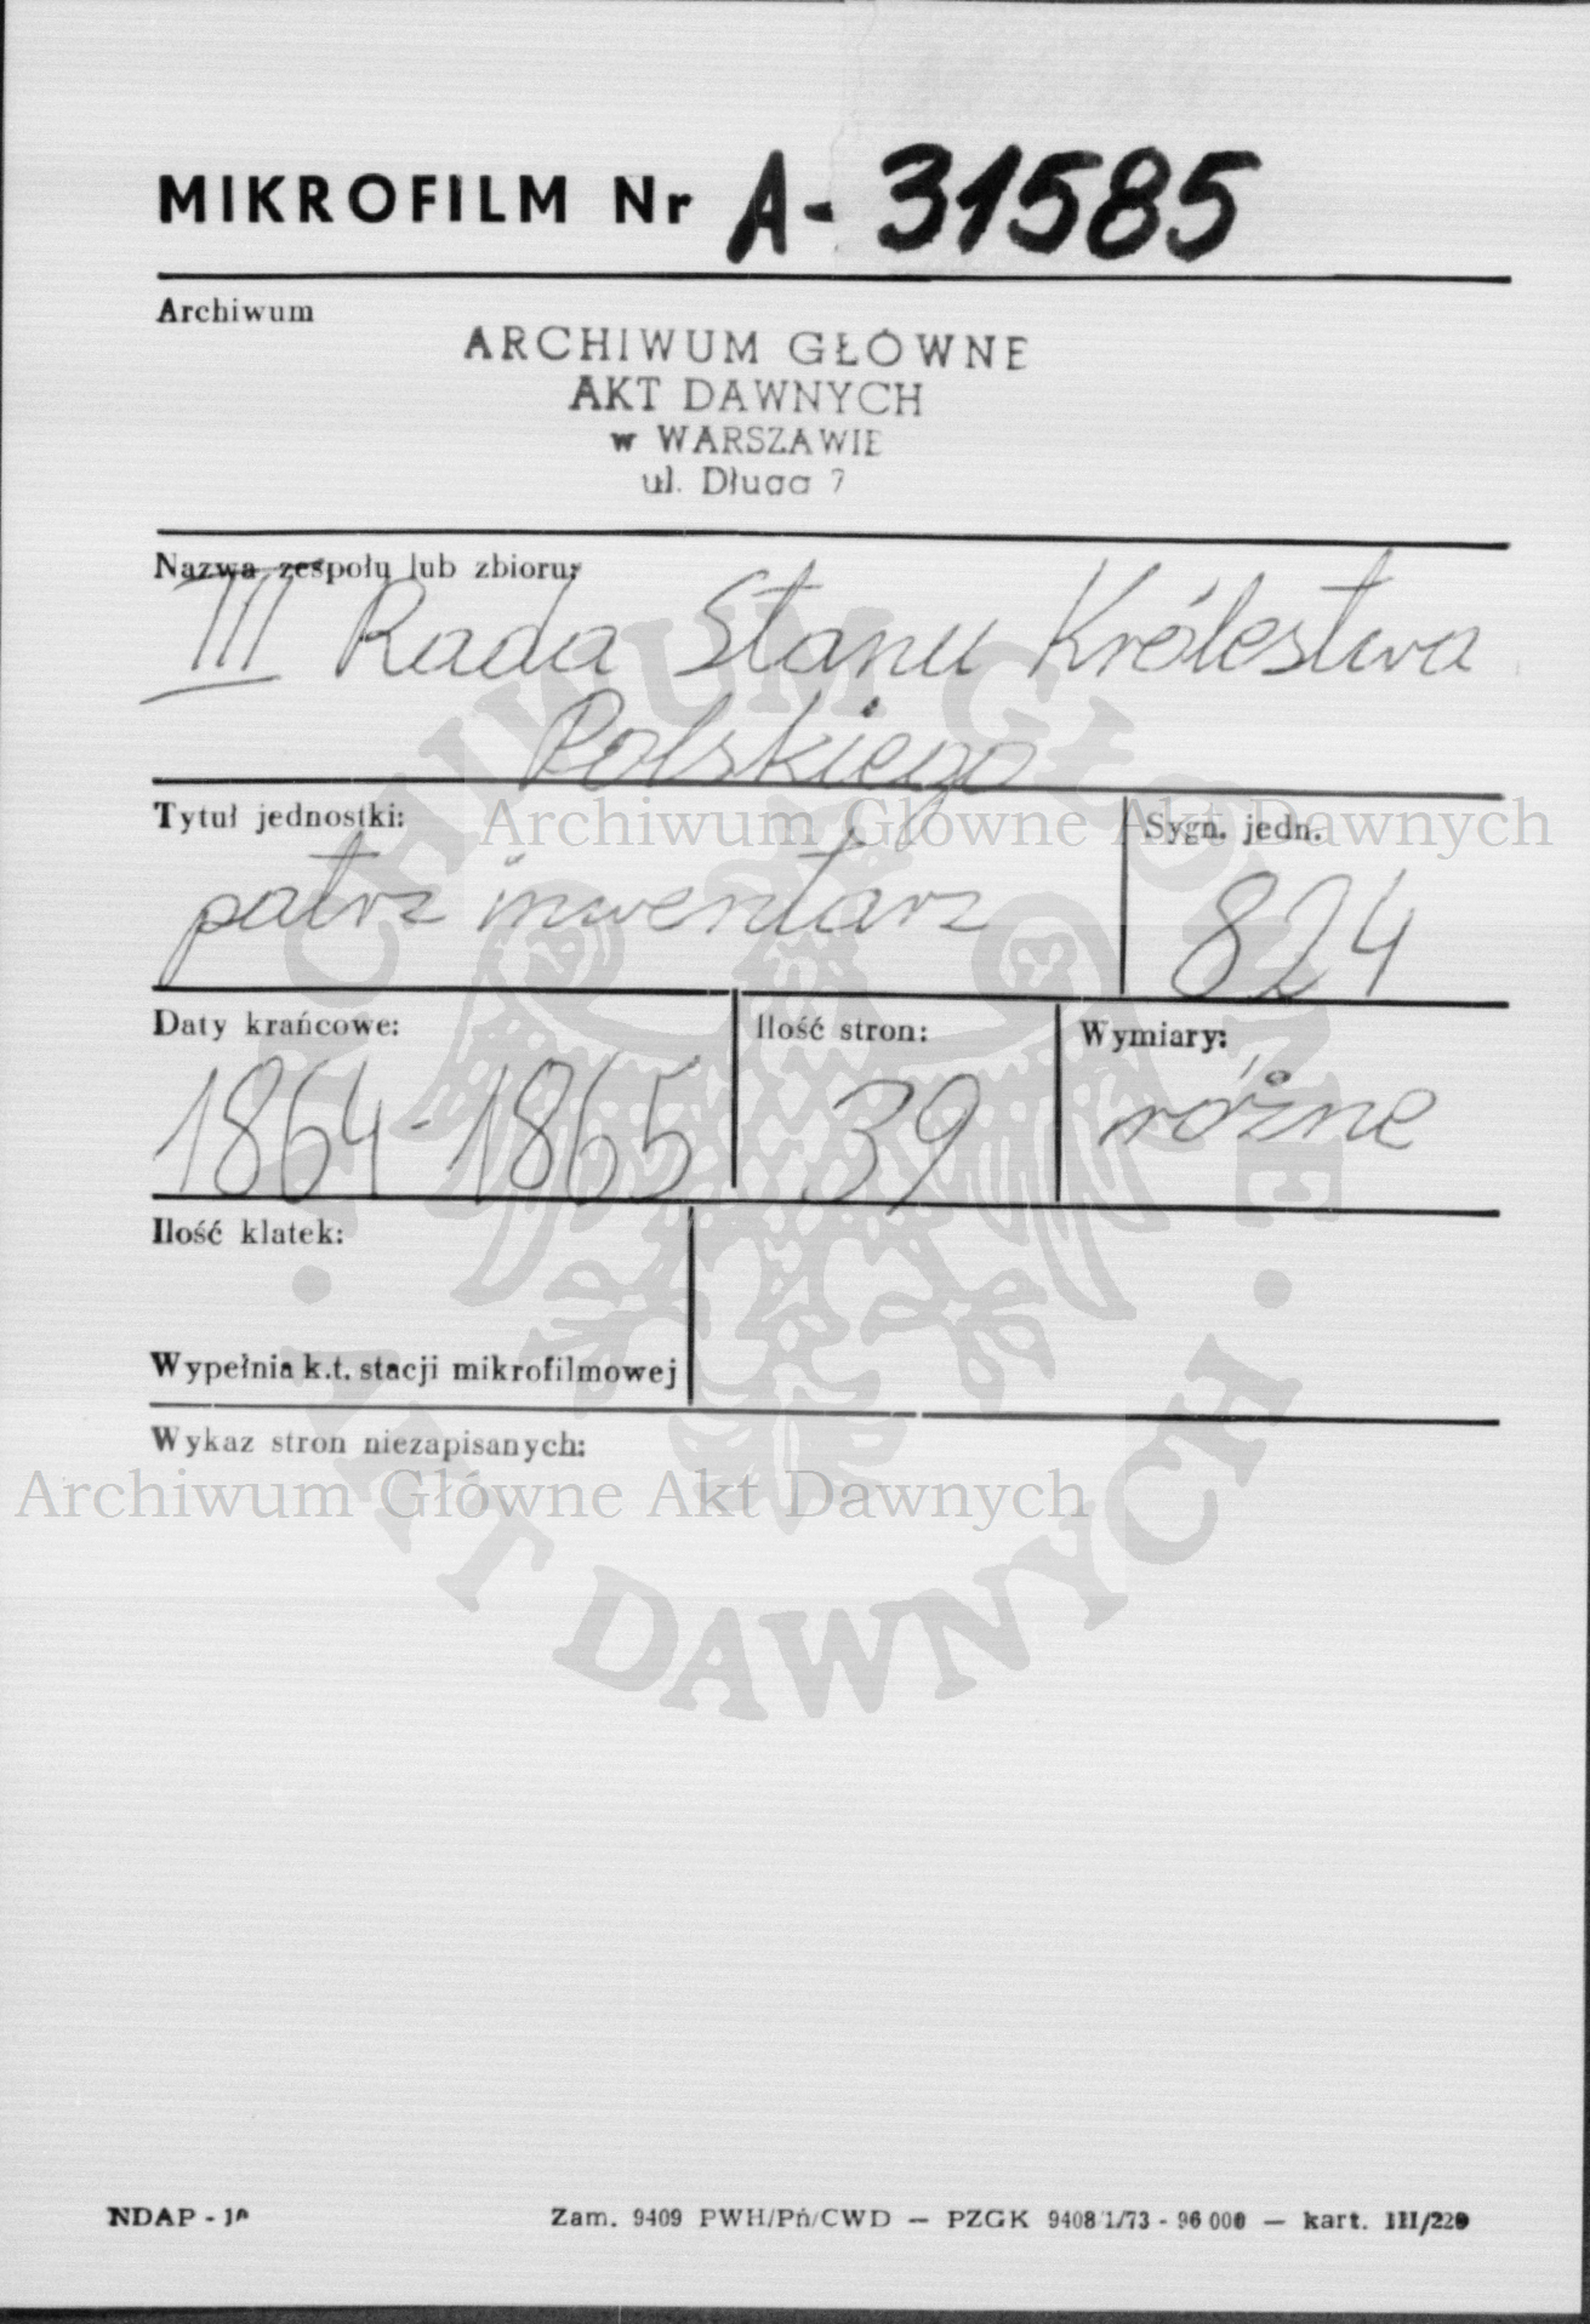 MIKROFILM Nr A-31585
Archiwum
ARCHIWUM GŁÓWNE
AKT DAWNYCH
w WARSZAWIE
ul. Długa 7
Nazwa zespołu lub zbioru:
III Rada Stanu Królestwa
Polskiego
Tytuł jednostki:
Sygn. jedn.
Archiwum Główne Akt Dawnych
patrz inwentarz
824
Daty krańcowe:
Ilość stron:
Wymiary:
1864-1865
39
różne
Ilość klatek:
Wypełnia k.t. stacji mikrofilmowej
Wykaz stron niezapisanych:
Archiwum Główne Akt Dawnych
ARCHIWUM GŁÓWNE
AKT DAWNYCH
NDAP -
Zam. 9409 PWH/Pń/CWD — PZGK 9408/1/73 - 96 000 — kart. III/220